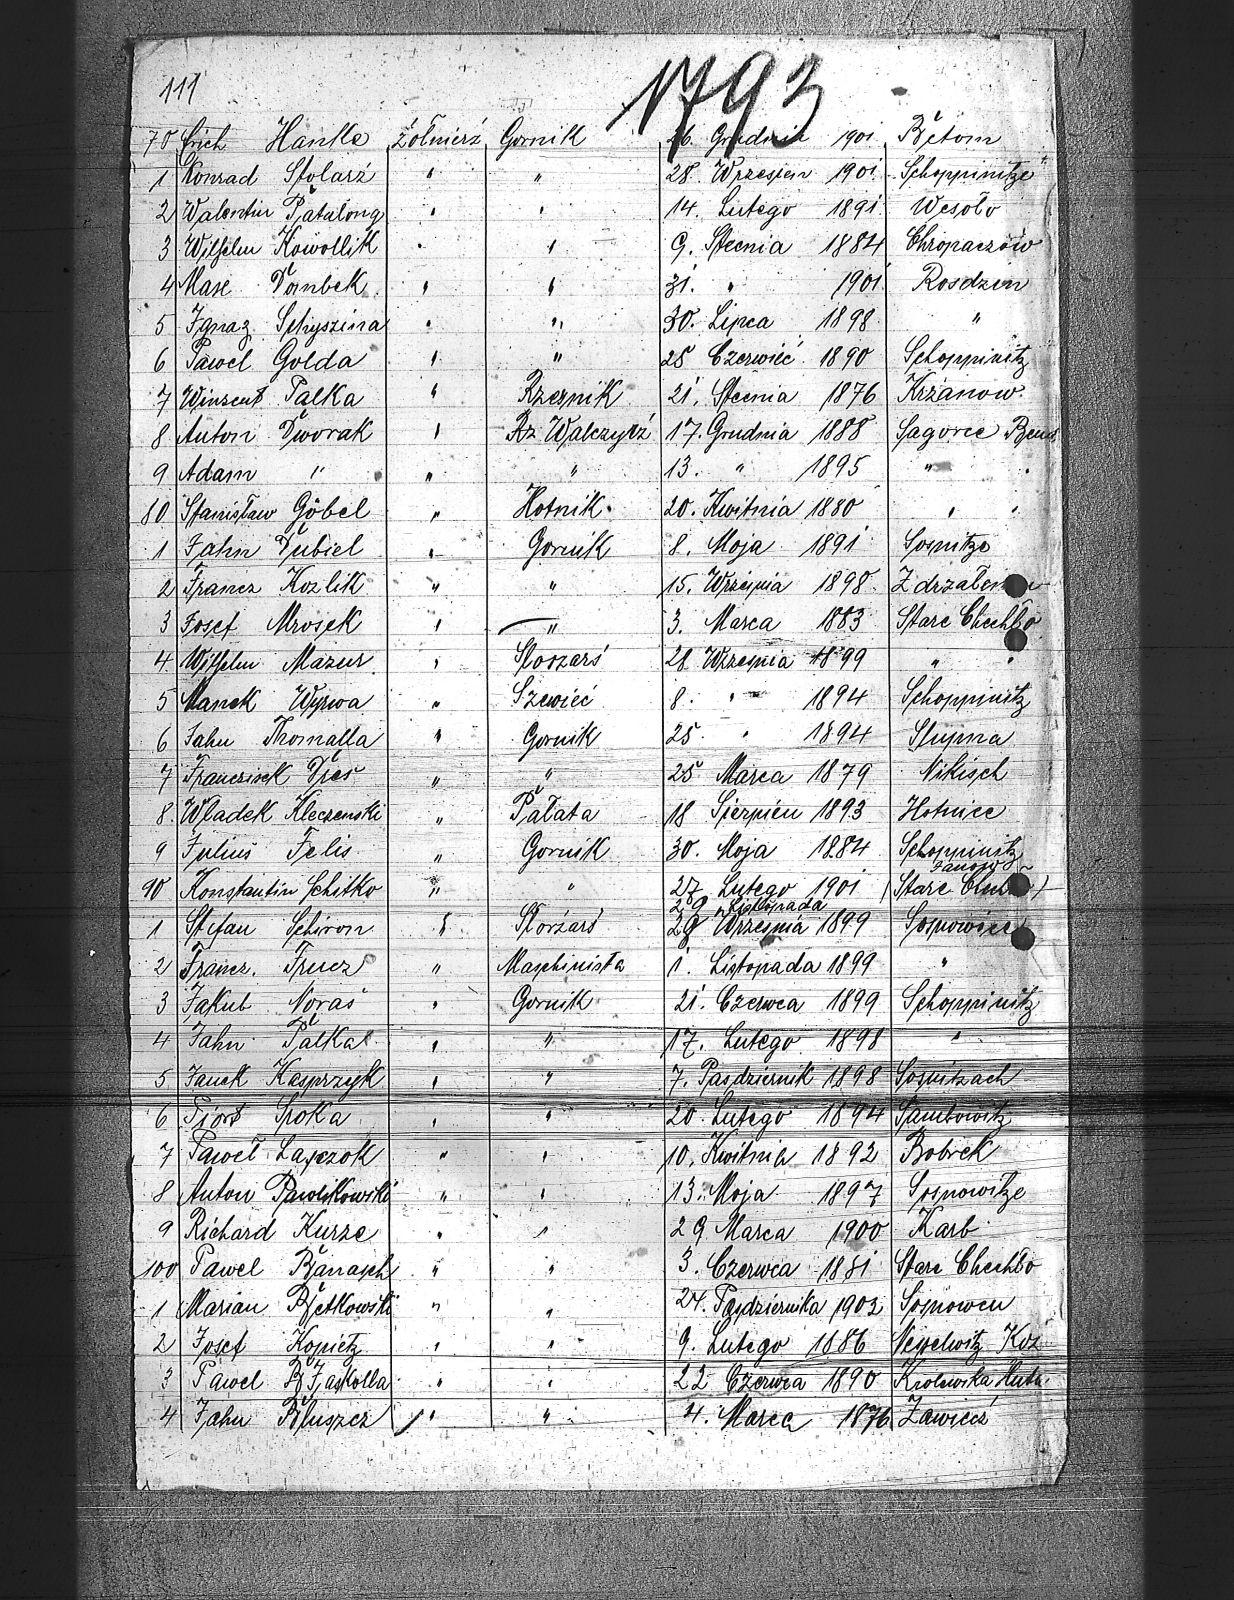 111
1793
70 Erich Hanke Żołnierź Gornik 26. Grudnia 1901 Bytom
1 Konrad Stolarź " " 28. Wrzesien 1901 Schoppinitze
2 Walentin Patalong " " 14. Lutego 1891 Wesoło
3 Wilhelm Kowollik " " 9. Stecnia 1884 Chropaczów
4 Maxe Dombek " " 31. " 1901 Rosdzen
5 Ignaz Schyszina " " 30. Lipca 1898 "
6 Pawel Golda " " 25 Czerwieć 1890 Schoppinitz
7 Winzent Palka " Rzeznik 21. Stecnia 1876 Krzanow
8 Anton Dworak " Rz Walczydź 17. Grudnia 1888 Sagorce
9 Adam " " " 13. " 1895 " "
80 Stanisław Göbel " Hotnik 20. Kwitnia 1880 " "
1 Jahn Dubiel " Gornik 8. Moja 1891 Sosnitze
2 Francz Kozlik " " 15. Wrzesnia 1898
3 Josef Mrosek " " 3. Marca 1883 Stare Chechło
4 Wilhelm Mazur " Sloszarś 28 Wrzesnia 1899 " "
5 Manek Wyrwa " Szewieć 8. " 1894 Schoppinitz
6 Jahn Thomalla " Gornik 25. " 1894 Slupna
7 Franczisek Dies " " 25 Marca 1879 Nikisch
8 Wladek Kleczenski " Pałata 18 Sierpien 1893 Hotnice
9 Julius Felis " Gornik 30. Moja 1884 Schoppinitz
90 Konstantin Schitko " " 27 Lutego 1901 (Stare
29 Listopada
1 Stefan Schiron " Slorżarś 28 Wrzesnia 1899 Sosnowiec
2 Francz. Frucz " Maschinista 1. Listopada 1899 "
3 Jakub Noraś " Gornik 21. Czerwca 1899 Schoppinitz
4 Jahn Palka " " 17. Lutego 1898 "
5 Janek Kasprzyk " " 7. Pasdziernik 1898 Sosnitzach
6 Piotr Sroka " " 20. Lutego 1894
7 Paweł Laszczok " " 10. Kwitnia 1892 Bobrek
8 Anton Pawlikowski " " 13. Moja 1897 Sosnowitze
9 Richard Kurze " " 29 Marca 1900 Karb
100 Pawel Banasch " " 3. Czerwca 1881 Stare Chechło
1 Marian Bętkowski " " 24. Pasdziernika 1902 Sosnowcu
2 Josef Kopietz " " 9. Lutego 1886
3 Pawel Jaskolla " " 22 Czerwca 1890 Krolewska Huta
4 Jahn Pluszcz " " 4. Marca 1876 Zawiecź